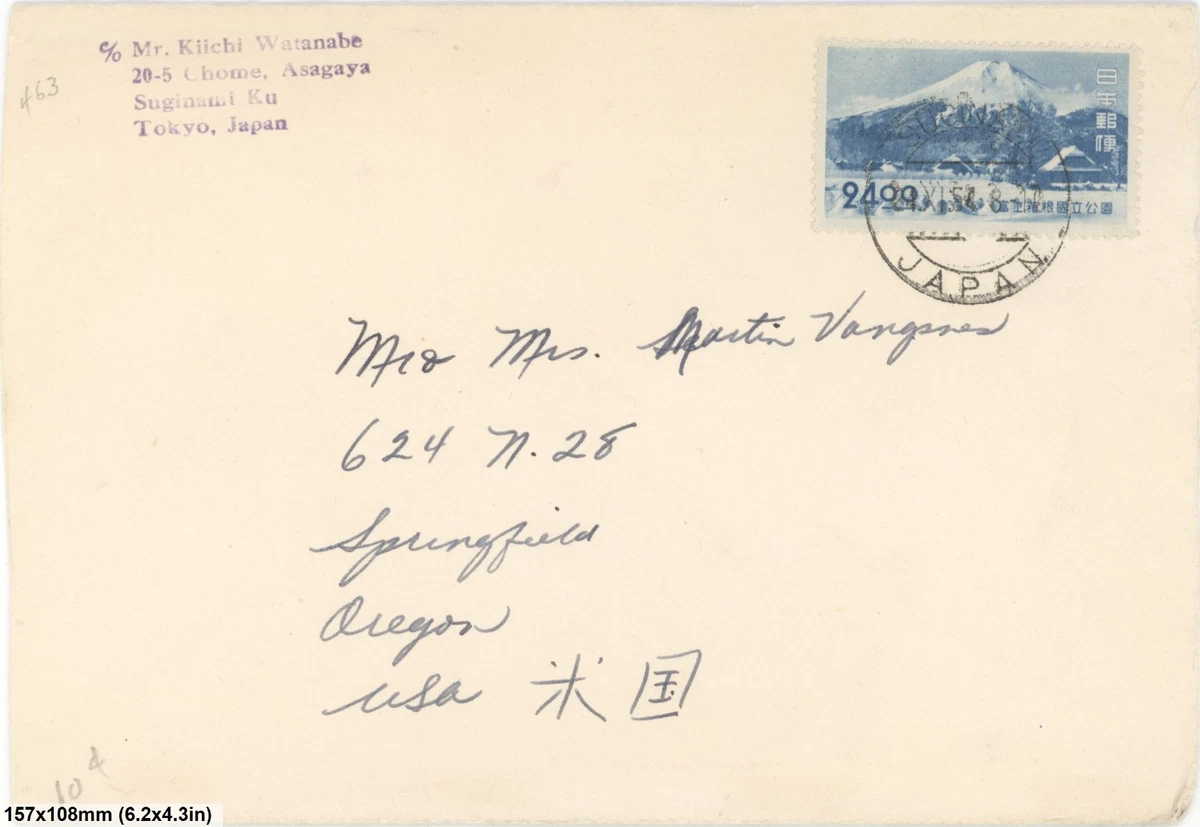 c/o Mr. Kiichi Watanabe
20-5 Chome, Asagaya
Suginami Ku
Tokyo, Japan
463
日本郵便
24.00
富士箱根國立公園
24.XI.54.8
JAPAN
Mr & Mrs. Martin Vangsnes
624 N. 28
Springfield
Oregon
USA 米国
10¢
157x108mm (6.2x4.3in)